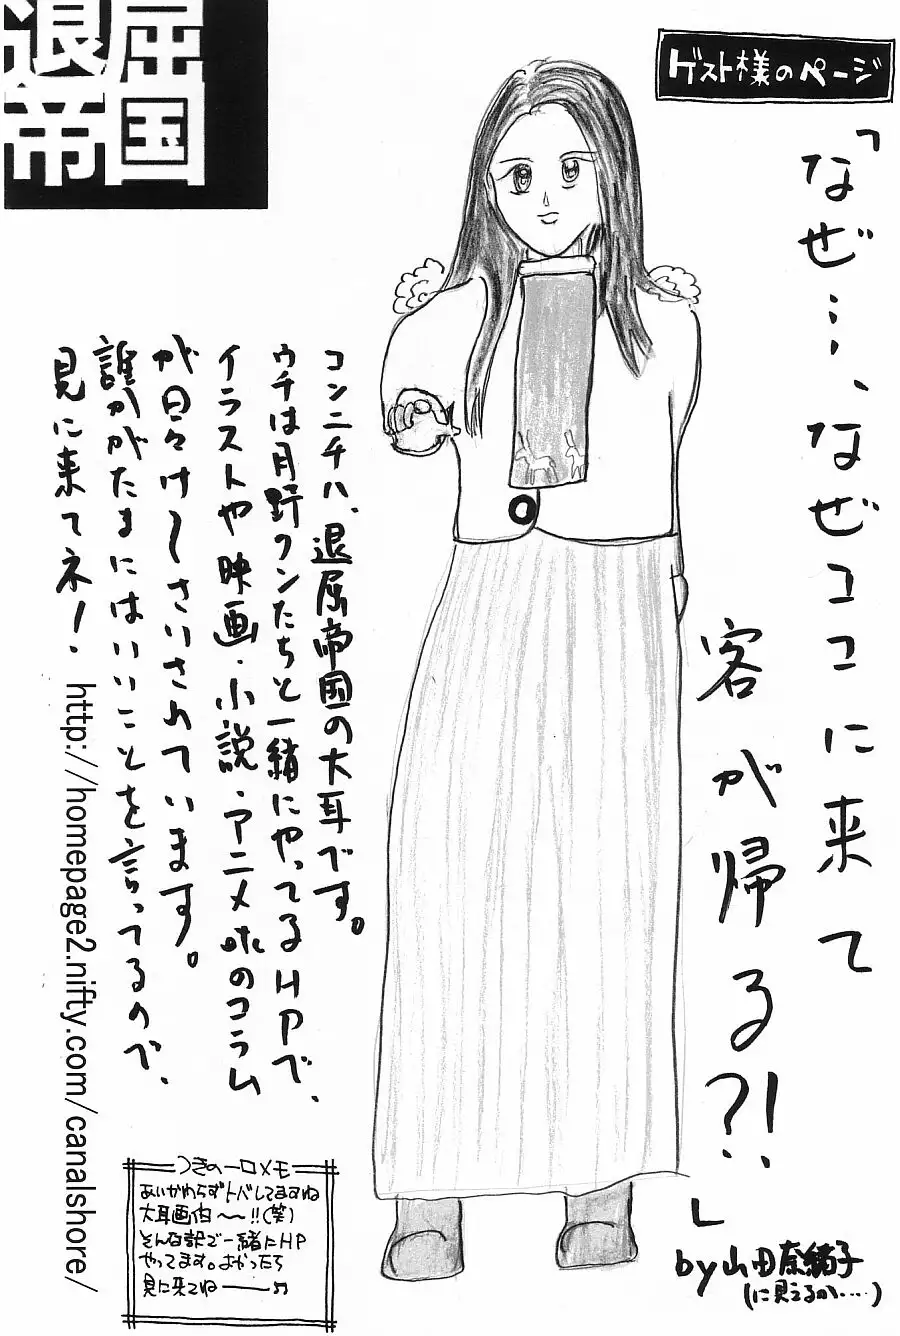 退屈
帝国
ゲスト様のページ
「なぜ…、なぜココに来て
客が帰る?!」
by山田奈緒子
(に見えるか……)
コンニチハ、退屈帝国の大耳です。
ウチは月野クンたちと一緒にやってるHPで、
イラストや映画・小説・アニメetcのコラム
が日々け〜さいされています。
誰かがたまにはいいことを言ってるので、
見に来てネ!
http://homepage2.nifty.com/canalshore/
つきの一口メモ
あいかわらずトバしてますね
大耳画伯〜〜!!(笑)
そんな訳で一緒にHP
やってます。よかったら
見に来てね――♫